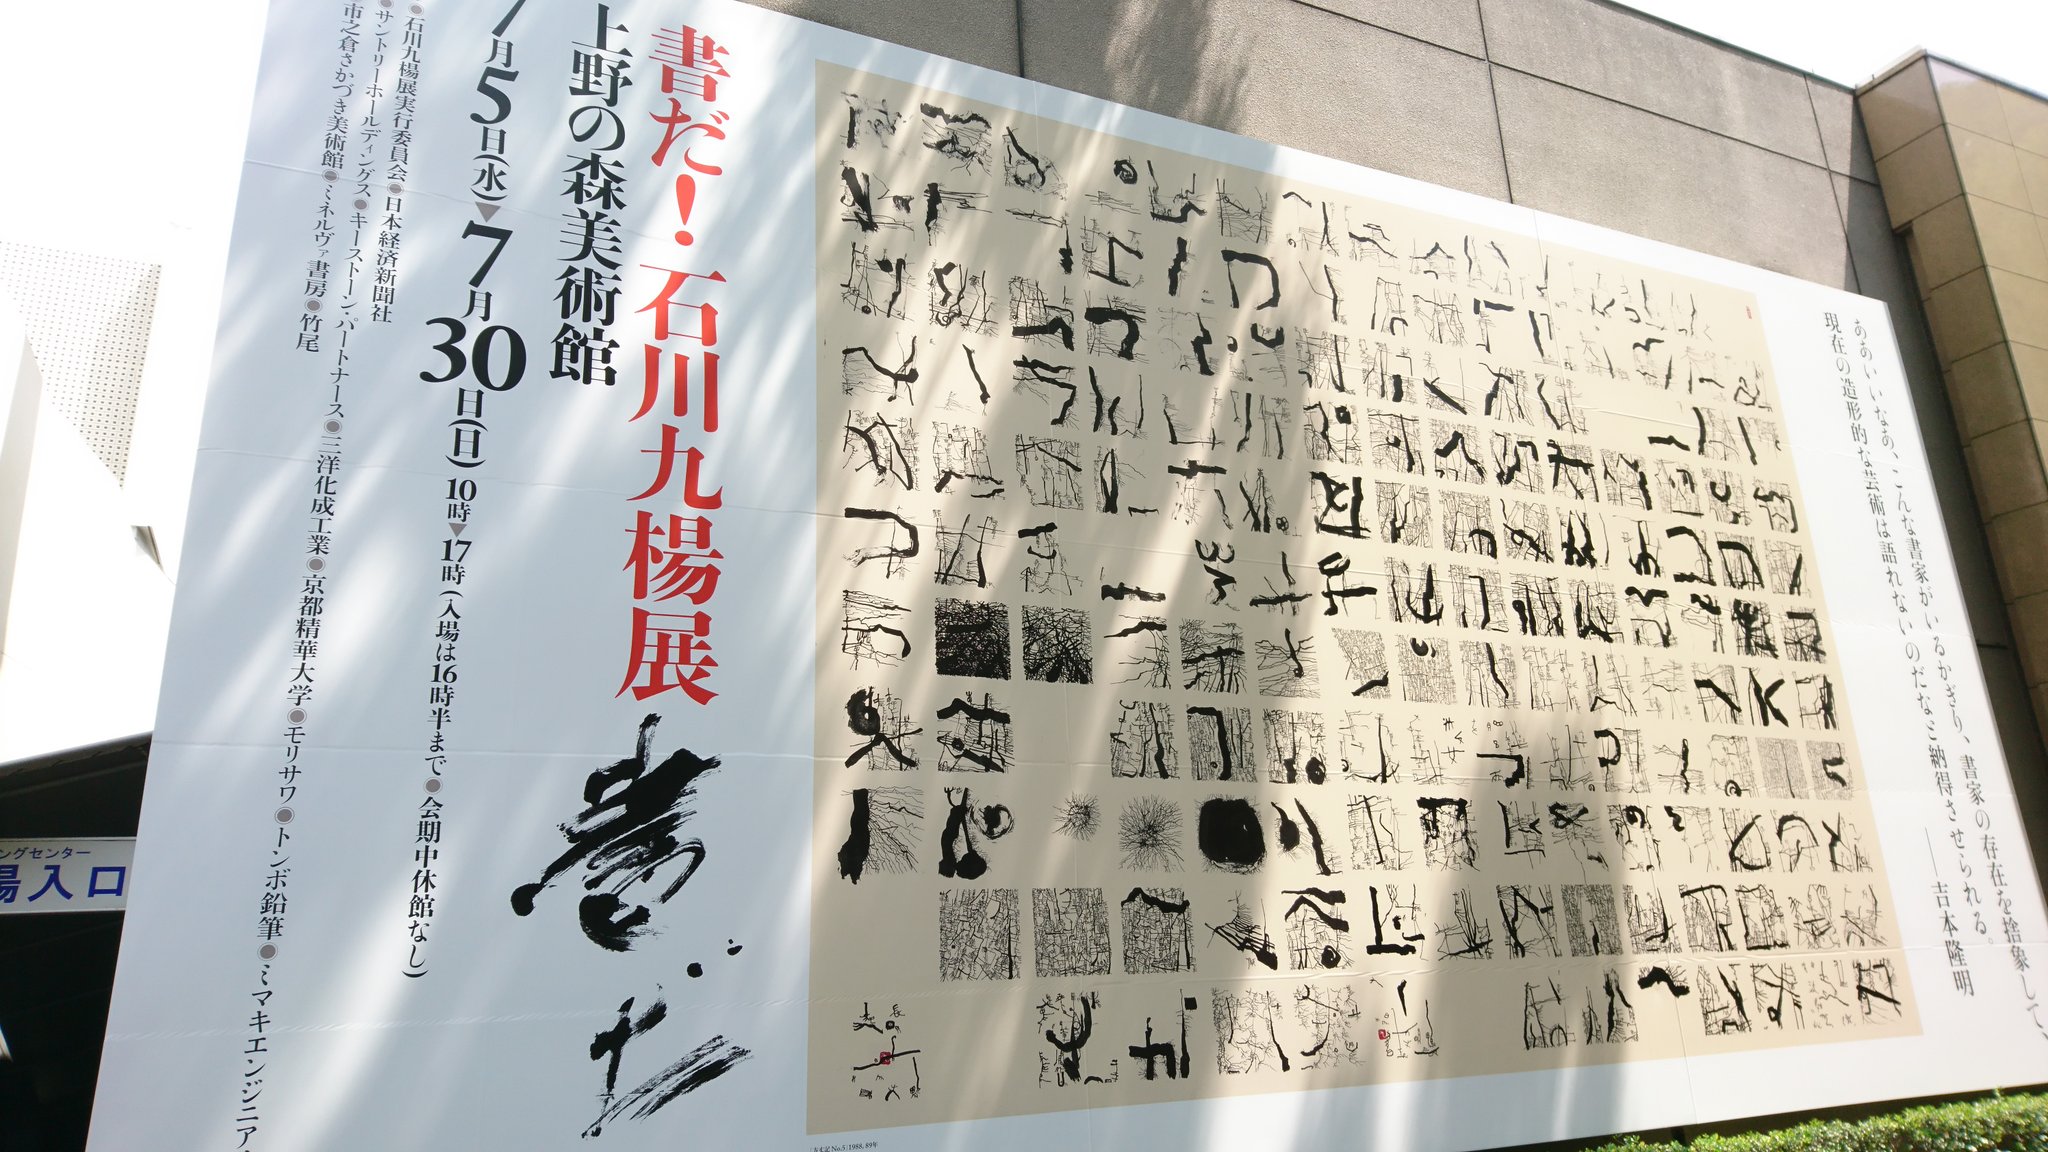 ああいいなあ、こんな書家がいるかぎり、書家の存在を捨象して、
現在の造形的な芸術は語れないのだなと納得させられる。
——吉本隆明
書だ！石川九楊展
上野の森美術館
7月5日(水)▼7月30日(日)10時▼17時(入場は16時半まで)●会期中休館なし)
●石川九楊展実行委員会●日本経済新聞社
●サントリーホールディングス●キーストーン・パートナース●三洋化成工業●京都精華大学●モリサワ●トンボ鉛筆●ミマキエンジニア
市之倉さかづき美術館●ミネルヴァ書房●竹尾
書だ
No.5|1988, 89年
ングセンター
場入口